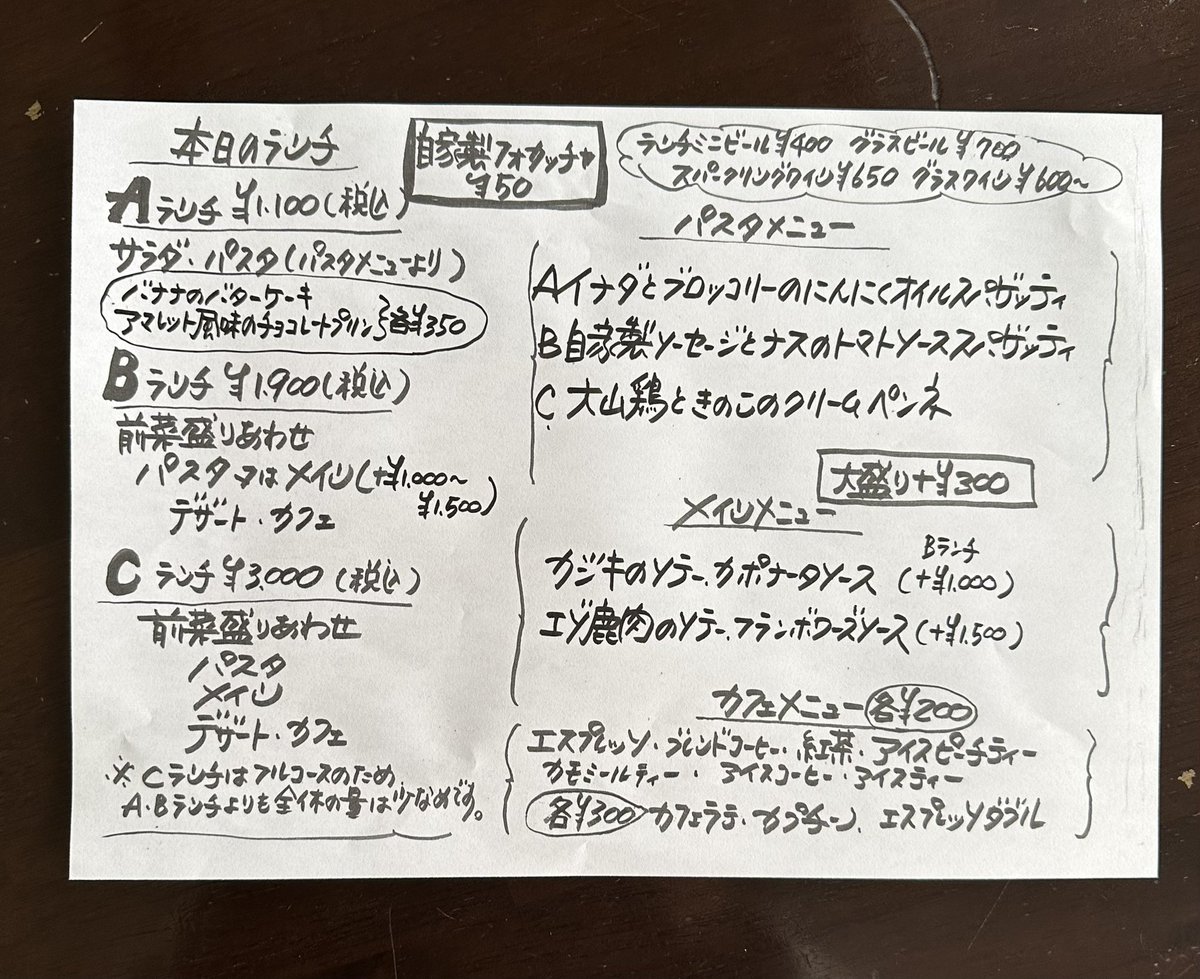 本日のランチ
Aランチ ¥1.100(税込)
サラダ・パスタ(パスタメニューより)
バナナのバターケーキ
アマレット風味のチョコレートプリン}各¥350
Bランチ ¥1.900(税込)
前菜盛りあわせ
パスタ又はメイン(+¥1.000~
¥1.500)
デザート・カフェ
Cランチ ¥3.000(税込)
前菜盛りあわせ
パスタ
メイン
デザート・カフェ
※Cランチはフルコースのため、
A・Bランチよりも全体の量は少なめです。
自家製フォカッチャ
¥50
ランチミニビール¥400 グラスビール¥700
スパークリングワイン¥650 グラスワイン¥600~
パスタメニュー
Aイナダとブロッコリーのにんにくオイルスパゲッティ
B自家製ソーセージとナスのトマトソーススパゲッティ
C大山鶏ときのこのクリームペンネ
大盛り+¥300
メインメニュー
Bランチ
カジキのソテー、カポナータソース(+¥1.000)
エゾ鹿肉のソテー、フランボワーズソース(+¥1.500)
カフェメニュー 各¥200
エスプレッソ・ブレンドコーヒー・紅茶・アイスピーチティー
カモミールティー・アイスコーヒー・アイスティー
各¥300 カフェラテ・カプチーノ、エスプレッソダブル